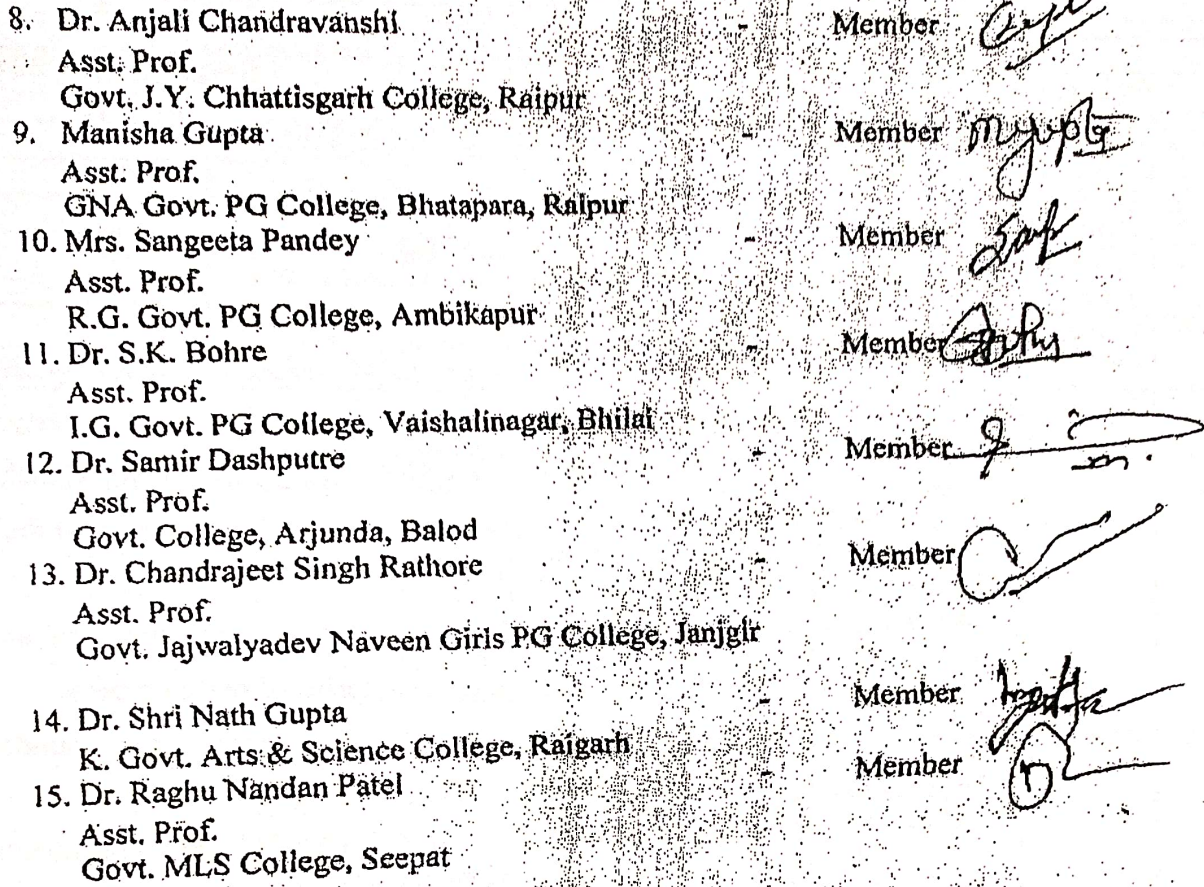 8. Dr. Anjali Chandravanshi - Member
Asst. Prof.
Govt. J.Y. Chhattisgarh College, Raipur
9. Manisha Gupta - Member mgupta
Asst. Prof.
GNA Govt. PG College, Bhatapara, Raipur
10. Mrs. Sangeeta Pandey - Member
Asst. Prof.
R.G. Govt. PG College, Ambikapur
11. Dr. S.K. Bohre - Member
Asst. Prof.
I.G. Govt. PG College, Vaishalinagar, Bhilai
12. Dr. Samir Dashputre - Member
Asst. Prof.
Govt. College, Arjunda, Balod
13. Dr. Chandrajeet Singh Rathore - Member
Asst. Prof.
Govt. Jajwalyadev Naveen Girls PG College, Janjgir
14. Dr. Shri Nath Gupta - Member
K. Govt. Arts & Science College, Raigarh
15. Dr. Raghu Nandan Patel - Member
Asst. Prof.
Govt. MLS College, Seepat